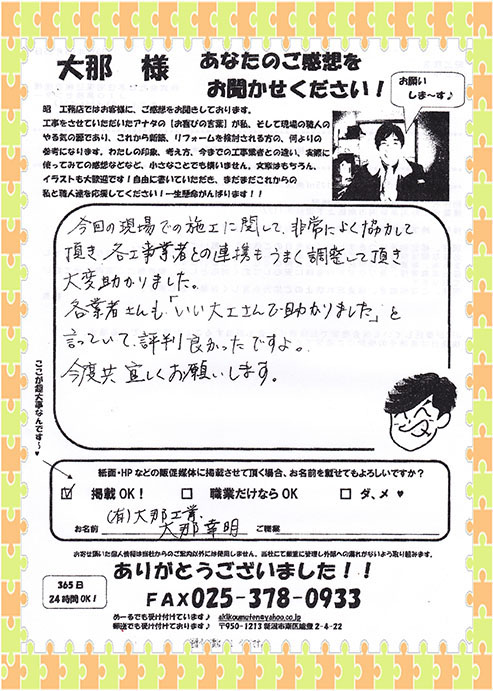 大那 様
あなたのご感想を
お聞かせください！
お願い
しま～す♪
昭 工務店ではお客様に、ご感想をお聞きしております。
工事をさせていただいたアナタの「お喜びの言葉」が私、そして現場の職人の
やる気の源であり、これから新築、リフォームを検討される方の、何よりの
参考になります。わたしの印象、考え方、今までの工事業者との違い、実際に
使ってみての感想などなど、小さなことでも構いません。文章はもちろん、
イラストも大歓迎です！自由に書いていただき、まだまだこれからの
私と職人達を応援してください！一生懸命がんばります！！
今回の現場での施工に関して、非常によく協力して
頂き 各工事業者との連携もうまく調整して頂き
大変助かりました。
各業者さんも「いい大工さんで助かりました」と
言っていて、評判良かったですよ。
今度共 宜しくお願いします。
ここが超大事なんです～♥
紙面・HPなどの販促媒体に掲載させて頂く場合、お名前を載せてもよろしいですか？
☑ 掲載OK！ □ 職業だけならOK □ ダ、メ ♥
(有)大那工業
お名前 大那幸明 ご職業
お寄せ頂いた個人情報は当社からのご案内以外には使用しません。当社にて厳重に管理し外部への漏れがないよう取り組みます。
ありがとうございました！！
365日
24時間OK！
FAX025-378-0933
めーるでも受け付けています♪ akikoumuten@yahoo.co.jp
郵送でも受け付けております♪ 〒950-1213 新潟市南区能登2-4-22